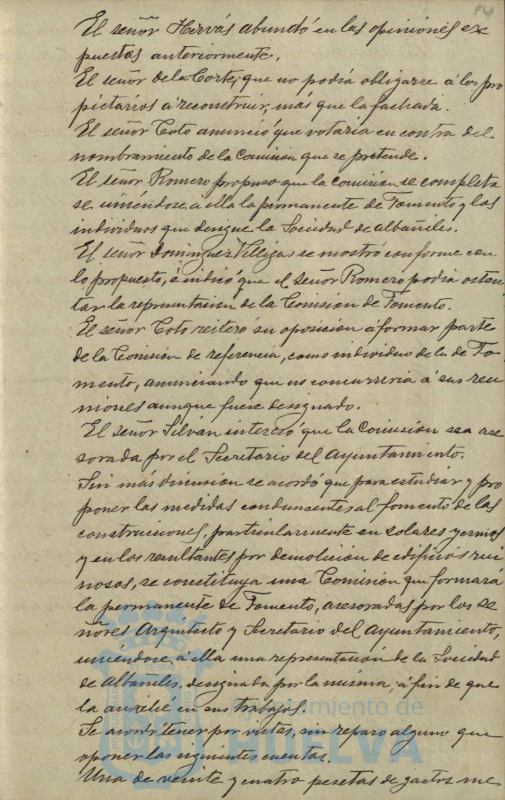 14
El señor Hervás abundó en las opiniones ex
puestas anteriormente.
El señor de la Corte, que no podia obligarse á los pro
pietarios á reconstruir, más que la fachada.
El señor Coto anunció que votaria en contra del
nombramiento de la Comision que se pretende.
El señor Romero propuso que la comision se completa
se uniéndose á ella la permanente de Fomento y los
individuos que designe la Sociedad de albañiles.
El señor Dominguez Villegas se mostró conforme con
lo propuesto, é indicó que el señor Romero podia osten
tar la representacion de la Comision de Fomento.
El señor Coto reiteró su oposicion á formar parte
de la Comision de referencia, como individuo de la de Fo
mento, anunciando que no concurriria á sus reu
niones aunque fuese designado.
El señor Silván interesó que la Comision sea ase
sorada por el Secretario del Ayuntamiento.
Sin más discusion se acordó que para estudiar y pro
poner las medidas conducentes al fomento de las
construcciones, particularmente en solares yermos
y en los resultantes por demolicion de edificios rui
nosos, se constituya una Comision que formará
la permanente de Fomento, asesoradas por los se
ñores Arquitecto y Secretario del Ayuntamiento,
uniéndose á ella una representación de la Sociedad
de Albañiles, designada por la misma, á fin de que
la auxilie en sus trabajos.
Se acordó tener por vistas, sin reparo alguno que
oponer las siguientes cuentas.
Una de veinte y cuatro pesetas de gastos me
Ayuntamiento de
HUELVA